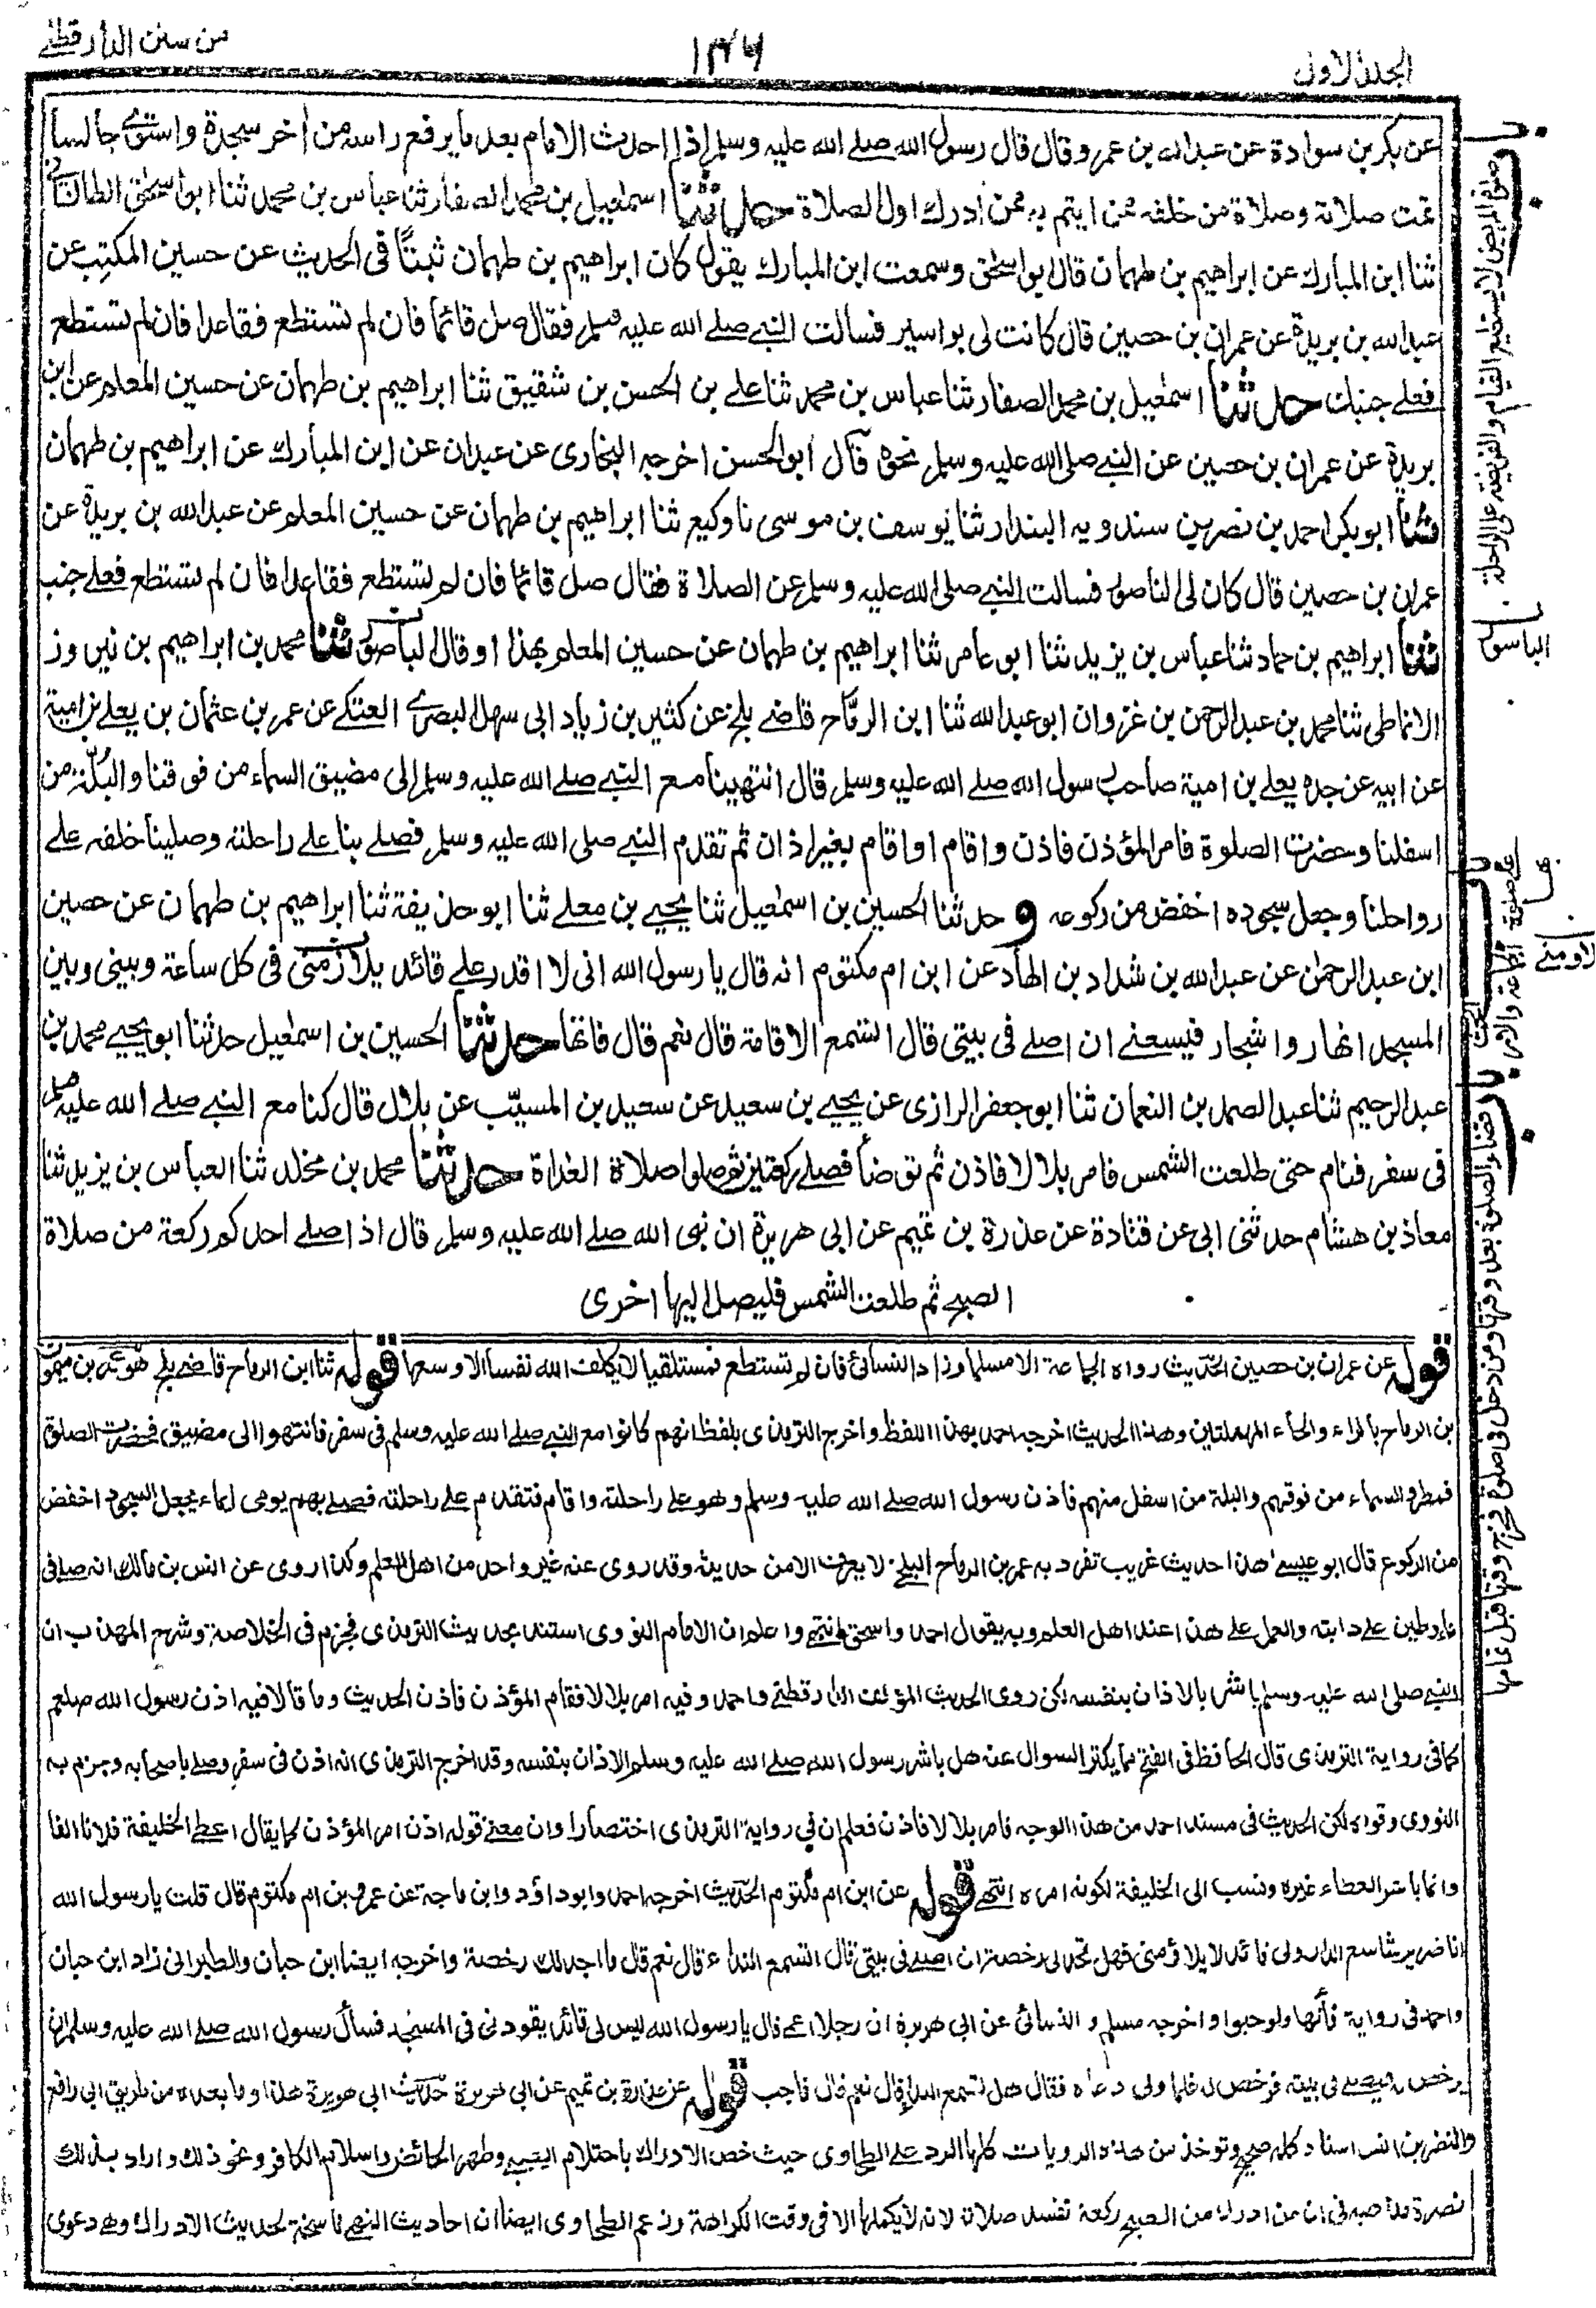 الجلد الاول
١٣٦
من سنن الدارقطنے
عن بكر بن سوادة عن عبدالله بن عمرو قال قال رسول الله صلے الله عليه وسلم إذا احدث الامام بعد ما يرفع راسه من أخر سجدة واستوے جالسا
تمت صلاته وصلاة من خلفه ممن ايتم به ممن ادرك اول الصلاة حدثنا اسمعيل بن محمد الصفار ثنا عباس بن محمد ثنا ابو اسحق الطالقانی
ثنا ابن المبارك عن ابراهيم بن طهمان قال ابو اسحق وسمعت ابن المبارك يقول كان ابراهيم بن طهمان ثبتًا فی الحديث عن حسين المكتب عن
عبدالله بن بريدة عن عمران بن حصين قال كانت لی بواسير فسالت النبے صلے الله عليه وسلم فقال صل قائما فان لم تستطع فقاعدا فان لم تستطع
فعلے جنبك حدثنا اسمعيل بن محمد الصفار ثنا عباس بن محمد ثنا علے بن الحسن بن شقيق ثنا ابراهيم بن طهمان عن حسين المعلم عن ابن
بريدة عن عمران بن حصين عن النبے صلی الله عليه وسلم نحوه قال ابو الحسن اخرجه البخاری عن عبدان عن ابن المبارك عن ابراهيم بن طهمان
ثنا ابو بكر احمد بن نصر بن سندويه البندار ثنا يوسف بن موسی نا وكيع ثنا ابراهيم بن طهمان عن حسين المعلم عن عبدالله بن بريدة عن
عمران بن حصين قال كان لی الناصور فسالت النبے صلی الله عليه وسلم عن الصلاة فقال صل قائما فان لم تستطع فقاعدا فان لم تستطع فعلے جنب
ثنا ابراهيم بن حماد ثنا عباس بن يزيد ثنا ابو عامر ثنا ابراهيم بن طهمان عن حسين المعلم بهذا او قال الباصور ثنا محمد بن ابراهيم بن نيروز
الانماطی ثنا محمد بن عبدالرحمن بن غزوان ابو عبدالله ثنا ابن الرمّاح قاضے بلخ عن كثير بن زياد ابی سهل البصرے العتكے عن عمر بن عثمان بن يعلے بن امية
عن ابيه عن جده يعلے بن امية صاحب رسول الله صلے الله عليه وسلم قال انتهينا مع النبے صلے الله عليه وسلم الی مضيق السماء من فوقنا والبلّة من
اسفلنا وحضرت الصلوة فامر المؤذن فاذن واقام او اقام بغير اذان ثم تقدم النبے صلی الله عليه وسلم فصلے بنا علے راحلته وصلينا خلفه علے
رواحلنا وجعل سجوده اخفض من ركوعه و حدثنا الحسين بن اسمعيل ثنا يحيے بن معلے ثنا ابو حذيفة ثنا ابراهيم بن طهمان عن حصين
ابن عبدالرحمن عن عبدالله بن شداد بن الهاد عن ابن ام مكتوم انه قال يا رسول الله انی لا اقدر علے قائد يلازمنی فی كل ساعة وبينی وبين
المسجد انهار واشجار فيسعنے ان اصلے فی بيتی قال اتسمع الاقامة قال نعم قال فاتها حدثنا الحسين بن اسمعيل حدثنا ابو يحيے محمد بن
عبدالرحيم ثنا عبدالصمد بن النعمان ثنا ابو جعفر الرازی عن يحيے بن سعيد عن سعيد بن المسيّب عن بلال قال كنا مع النبے صلے الله عليه وسلم
فی سفر فنام حتی طلعت الشمس فامر بلالا فاذن ثم توضأ فصلے ركعتين ثم صلوا صلاة الغداة حدثنا محمد بن مخلد ثنا العباس بن يزيد ثنا
معاذ بن هشام حدثنی ابی عن قتادة عن عذرة بن تميم عن ابی هريرة ان نبی الله صلے الله عليه وسلم قال اذا صلے احدكم ركعة من صلاة
الصبح ثم طلعت الشمس فليصل اليها اخری
قوله عن عمران بن حصين الحديث رواه الجماعة الا مسلما وزاد النسائی فان لم تستطع فمستلقيا لا يكلف الله نفسا الا وسعها قوله ثنا ابن الرماح قاضے بلخ هو عمر بن ميمون
بن الرماح بالراء والحاء المهملتين وهذا الحديث اخرجه احمد بهذا اللفظ واخرج الترمذی بلفظ انهم كانوا مع النبے صلے الله عليه وسلم فی سفر فانتهوا الی مضيق فحضرت الصلوة
فمطروا السماء من فوقهم والبلة من اسفل منهم فاذن رسول الله صلے الله عليه وسلم وهو علے راحلته واقام فتقدم علے راحلته فصلے بهم يومی ايماء يجعل السجود اخفض
من الركوع قال ابو عيسے هذا حديث غريب تفرد به عمر بن الرماح البلخے لا يعرف الا من حديثه وقد روی عنه غير واحد من اهل العلم وكذا روی عن انس بن مالك انه صلے فی
ماء وطين علے دابته والعمل علے هذا عند اهل العلم وبه يقول احمد واسحق انتهے واعلم ان الامام النووی استند بحديث الترمذی فجزم فی الخلاصة وشرح المهذب ان
النبے صلی الله عليه وسلم باشر بالاذان بنفسه لكن روی الحديث المؤلف الدارقطنے واحمد وفيه امر بلالا فقام المؤذن فاذن الحديث وما قالا فيه اذن رسول الله صلعم
كما فی رواية الترمذی قال الحافظ فی الفتح مما يكثر السوال عنه هل باشر رسول الله صلے الله عليه وسلم الاذان بنفسه وقد اخرج الترمذی انه اذن فی سفر وصلے باصحابه وجزم به
النووی وقواه لكن الحديث فی مسند احمد من هذا الوجه فامر بلالا فاذن فعلم ان فی رواية الترمذی اختصارا وان معنے قوله اذن امر المؤذن كما يقال اعطے الخليفة فلانا الفا
وانما باشر العطاء غيره ونسب الی الخليفة لكونه امر به انتهے قوله عن ابن ام مكتوم الحديث اخرجه احمد وابو داؤد وابن ماجة عن عمرو بن ام مكتوم قال قلت يا رسول الله
انا ضرير شاسع الدار ولی قائد لا يلائمنی فهل تجد لی رخصة ان اصلے فی بيتی قال اتسمع النداء قال نعم قال ما اجد لك رخصة واخرجه ايضا ابن حبان والطبرانی زاد ابن حبان
واحمد فی رواية فأتها ولو حبوا واخرجه مسلم والنسائی عن ابی هريرة ان رجلا اعمے قال يا رسول الله ليس لی قائد يقودنی فی المسجد فسأل رسول الله صلے الله عليه وسلم ان
يرخص له فيصلے فی بيته فرخص له فلما ولی دعاه فقال هل تسمع النداء قال نعم قال فاجب قوله عن عذرة بن تميم عن ابی هريرة حديث ابی هريرة هذا وما بعده من طريق ابی رافع
والنضر بن انس اسناد كله صحيح وتوخذ من هذه الروايات كلها الرد علے الطحاوی حيث خص الادراك باحتلام الصبے وطهر الحائض واسلام الكافر ونحو ذلك واراد بذلك
نصرة مذهبه فی ان من ادرك من الصبح ركعة تفسد صلاته لانه لا يكملها الا فی وقت الكراهة وزعم الطحاوی ايضا ان احاديث النهے ناسخة لحديث الادراك وهے دعوی
باب صلوة المريض لا يستطيع القيام والفريضة علی الراحلة
الباسور
لاومنے
باب قضاء الصلوة بعد وقتها ومن دخل فی صلوة فخرج وقتها قبل تمامها